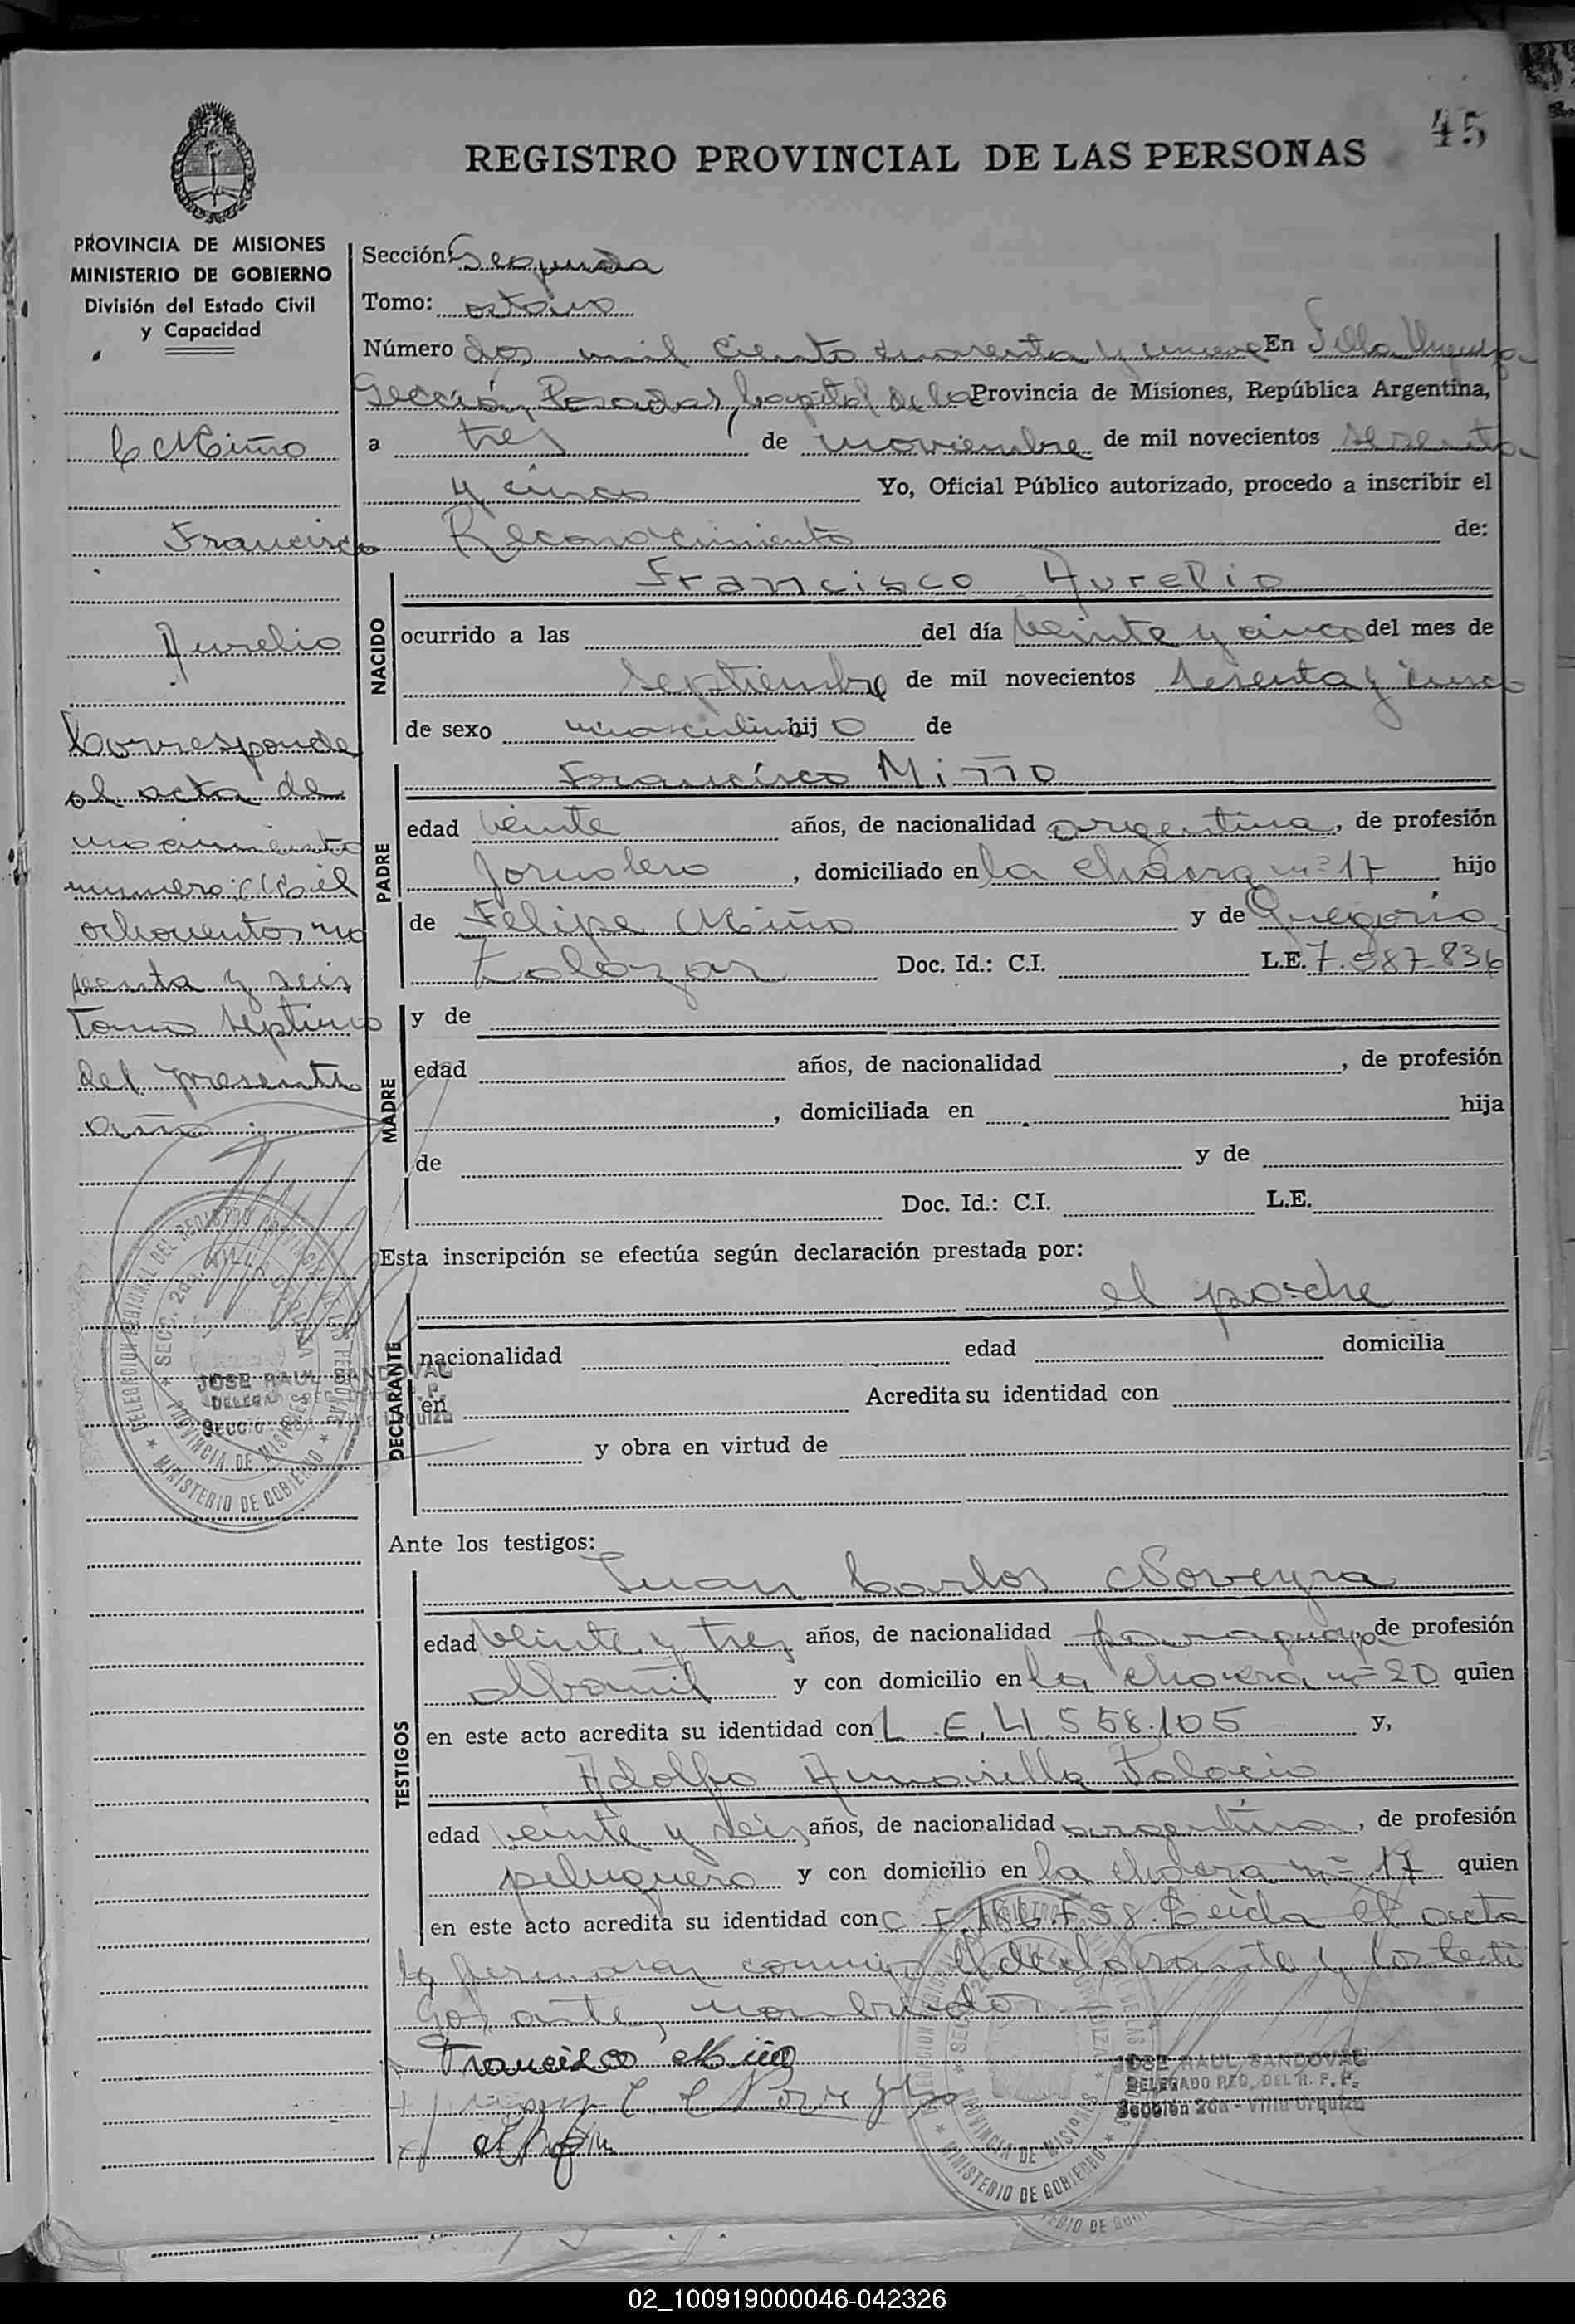 45
REGISTRO PROVINCIAL DE LAS PERSONAS
PROVINCIA DE MISIONES
MINISTERIO DE GOBIERNO
División del Estado Civil
y Capacidad
Miño
Francisco
Aurelio
Corresponde
al acta de
nacimiento
número: Mil
ochocientos no
venta y seis
Tomo septimo
del presente
año.
Sección: Segunda
Tomo: octavo
Número dos mil ciento cuarenta y nueve En Villa Urquiza
Sección, Posadas, Capital de la Provincia de Misiones, República Argentina,
a tres de noviembre de mil novecientos sesenta
y cinco Yo, Oficial Público autorizado, procedo a inscribir el
Reconocimiento de:
NACIDO
Francisco Aurelio
ocurrido a las del día veinte y cinco del mes de
septiembre de mil novecientos sesenta y cinco
de sexo masculino hijo de
PADRE
Francisco Miño
edad veinte años, de nacionalidad argentina, de profesión
Jornalero, domiciliado en la chacra nº 17 hijo
de Felipe Miño y de Gregoria
Doc. Id.: C.I. L.E. 7.587.836
MADRE
y de
edad años, de nacionalidad , de profesión
, domiciliada en hija
de y de
Doc. Id.: C.I. L.E.
Esta inscripción se efectúa según declaración prestada por:
DECLARANTE
el padre
nacionalidad edad domicilia
en Acredita su identidad con
y obra en virtud de
Ante los testigos:
TESTIGOS
Juan Carlos Noveyra
edad veinte y tres años, de nacionalidad paraguayo de profesión
albañil y con domicilio en la chacra nº 20 quien
en este acto acredita su identidad con L.E. 4.558.105 y,
Adolfo Palacio
edad veinte y seis años, de nacionalidad argentina, de profesión
peluquero y con domicilio en la chacra nº 17 quien
en este acto acredita su identidad con C. Leída el acta
la firman el declarante y los testi
gos ante nombrados
Francisco Miño
JOSE RAUL SANDOVAL
DELEGADO REG. DEL R. P. P.
Sección 2da - Villa Urquiza
DELEGACION REGIONAL DEL REGISTRO PROVINCIAL DE LAS PERSONAS
SECC. 2da. VILLA URQUIZA
PROVINCIA DE MISIONES
MINISTERIO DE GOBIERNO
02_100919000046-042326